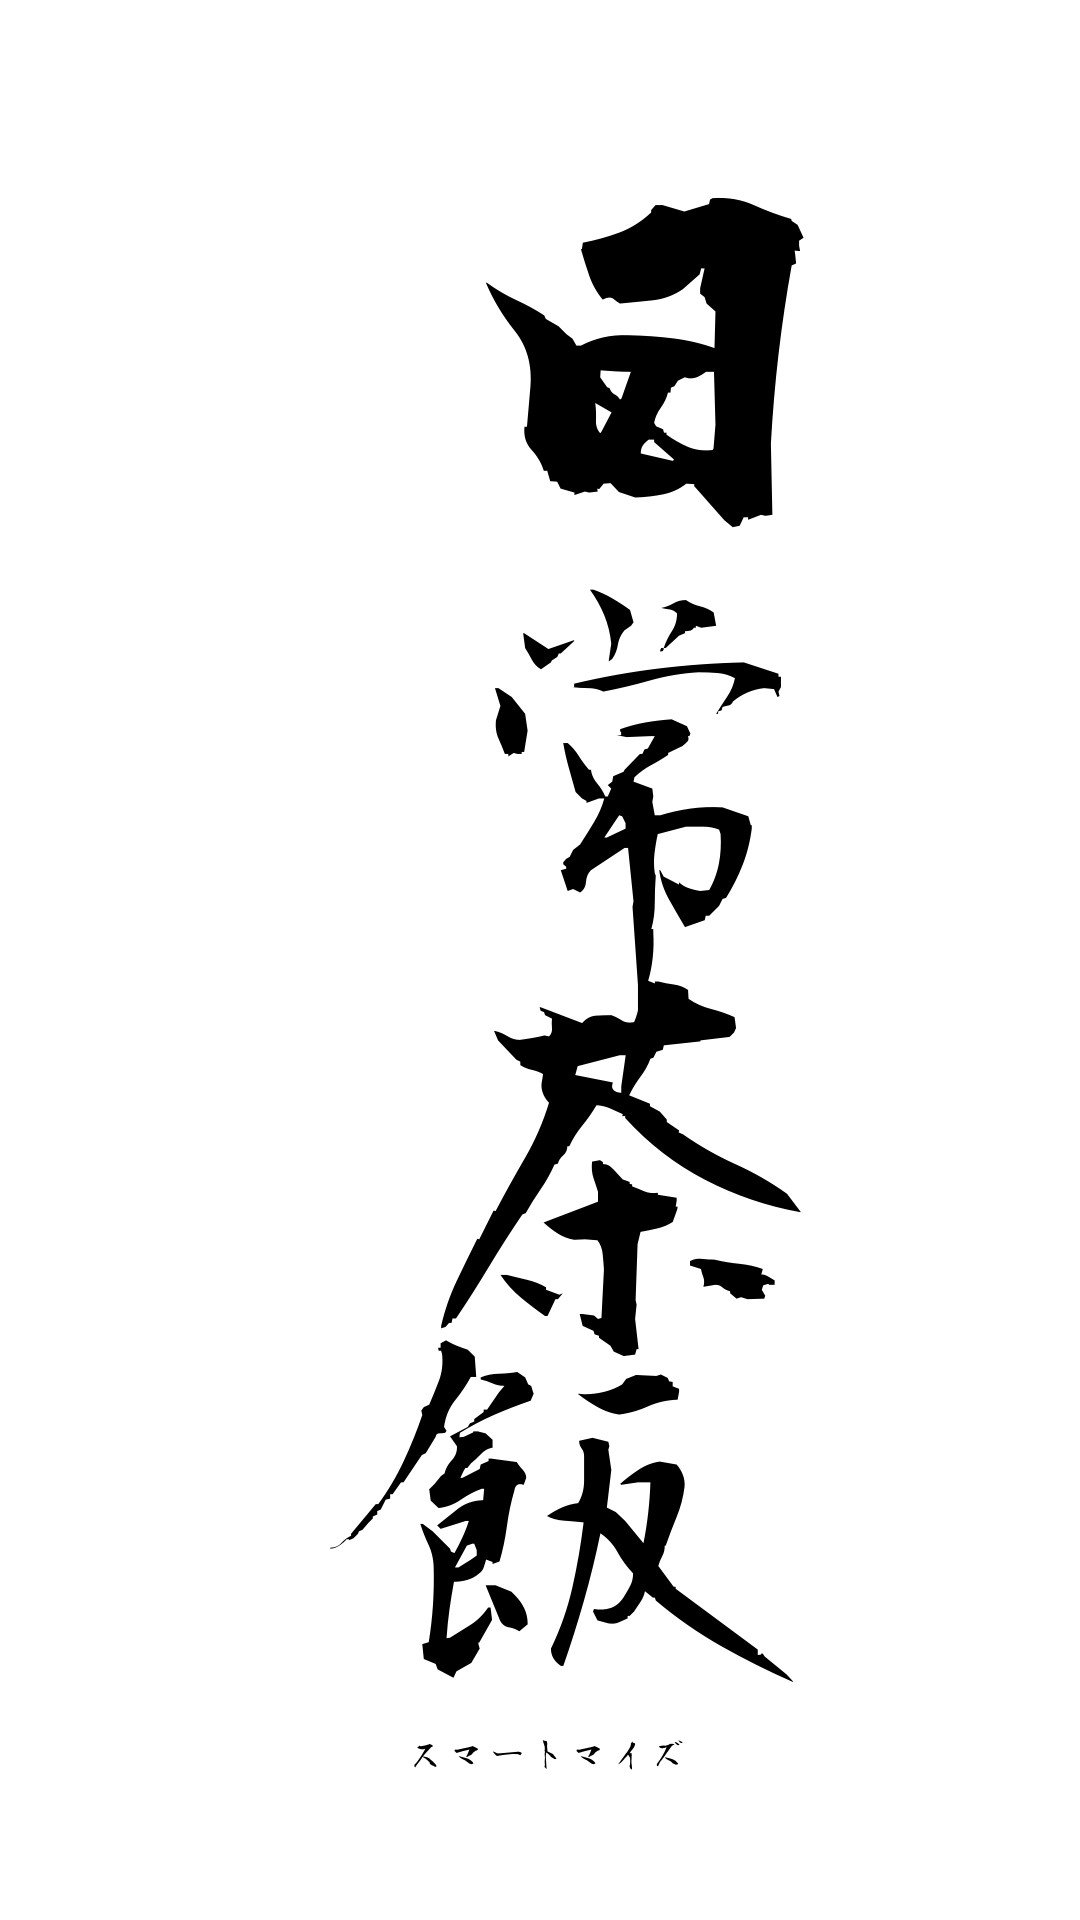 日常茶飯
スマートマイズ